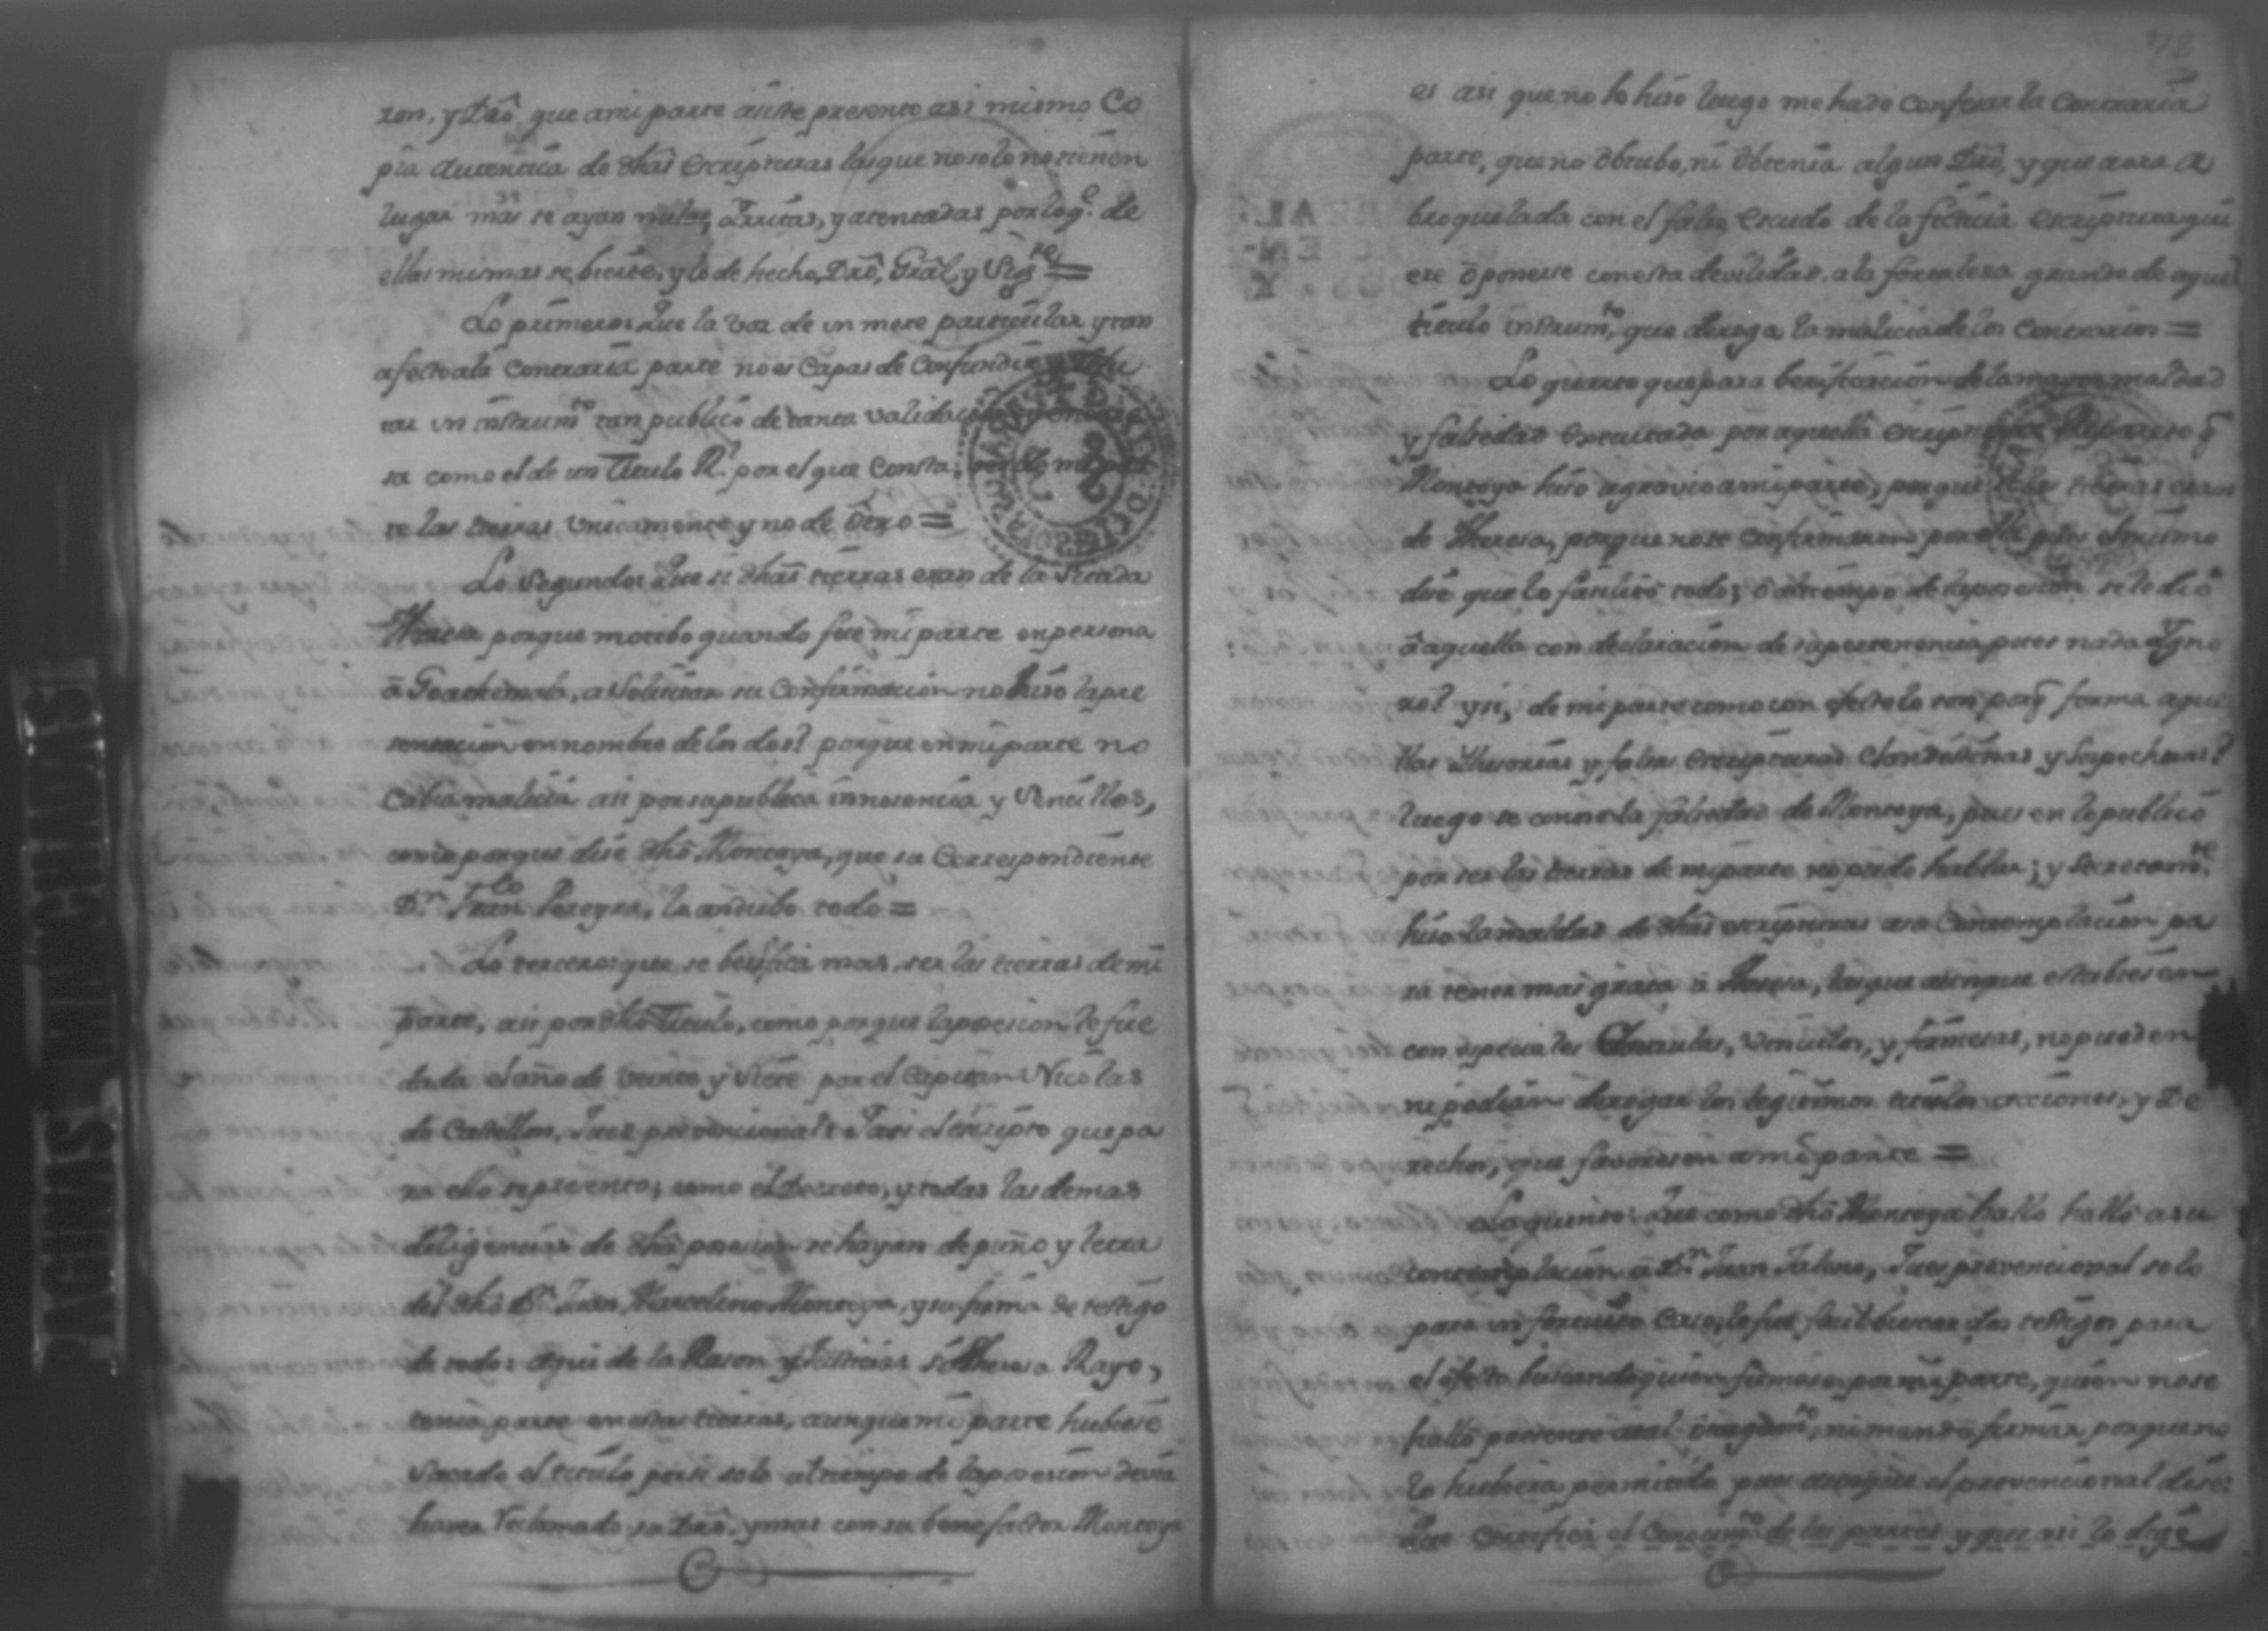 zon, y Dro que ami parte asiste presento asi mismo Co
pia autentica de dhas escripturas las que no solo no tienen
lugar mas se ayan nulas, Irritas, y atentadas por lo q.e de
ellas mismas se bierte, y lo de hecho, Dro, Gral, y Sig.te =
Lo primero: Que la voz de un mero particular y tan
afecto ala Contraria parte no es Capas de Confundir
tar un instrum.to tan publico de tanta valida
sa como el de un Titulo R.l por el que Consta,
te las tierras unicamente y no de otro =
Lo Segundo: Que si dhas tierras eran de la Sitada
Theresa porque motibo quando fue mi parte en persona
â Goathemala, a Solicitar su Confirmacion no hiso la pre
sentacion en nombre de los dos? porque en mi parte no
Cabia malicia asi por su publica innosencia y Sensilles,
como porque dise dho Montoya, que su Correspondiente
D.n Fran.co Pereyra, lo andubo todo =
Lo tercero: que se berifica mas, ser las tierras de mi
parte, asi por dho Titulo, como porque la posesion le fue
dada el año de veinte y siete por el Capitan Nicolas
de Castellon, Juez prevencional: Y asi el escripto que pa
ra ello se presento; como el Decreto, y todas las demas
diligencias de dha posesion se hayan de puño y letra
del dho D.n Juan Marcelino Montoya, y su firma de testigo
de todo: aqui de la Rason y Justicia: si Theresa Rayo,
tenia parte en estas tierras, aunque mi parte hubiese
Sacado el titulo por si solo al tiempo de la posesion devia
haver Reclamado su Dro. y mas con su benefactor Montoya
172
es asi que no lo hiso luego me ha de Confesar la Contraria
parte, que no obtubo, ni obtenia algun Dro, y que aora a
broquelada con el falso escudo de la ficticia escriptura qui
ere oponerse con esta devilidad, a la fortaleza grande de aquel
titulo instrum.to, que deroga la malicia de los Contrarios =
Lo quarto que para berificacion de la mayor maldad
y falsedad executada por aquella
Montoya hiso agravio a mi parte, porque si las tierras eran
de Theresa, porque no se Confirmaron por ella pues el mismo
dise que lo facilitó todo; ó al tiempo de la posesion se le dio
â aquella con declaracion de su pertenencia pues nada
ro? y si, de mi parte como con efecto lo son por q̃ forma aque
llas y falsas escripturas Clandestinas y Sospechosas?
luego se conose la falsedad de Montoya, pues en lo publico
por ser las tierras de mi parte no pudo hablar; y Secretam.te
hiso la maldad de dhas escripturas a su Contemplacion pa
ra tener mas grata a Theresa, las que aunque estubiesen
con especiales Clausulas, vinculos, y firmesas, no pueden
ni podian derogar los legitimos titulos acciones, y De
rechos, que favoresen a mi parte =
Lo quinto: Que como dho Montoya halló halló a su
contemplacion a D.n Juan Jalono, Jues prevencional solo
para un fortuito Caso, le fue facil buscar dos testigos para
el efecto buscando quien firmase por mi parte, quien no se
halló presente a tal, ni mandó firmar porque no
lo hubiera permitido pues aunque el prevencional dise:
Que Certifica el Conosim.to de las partes y que asi lo